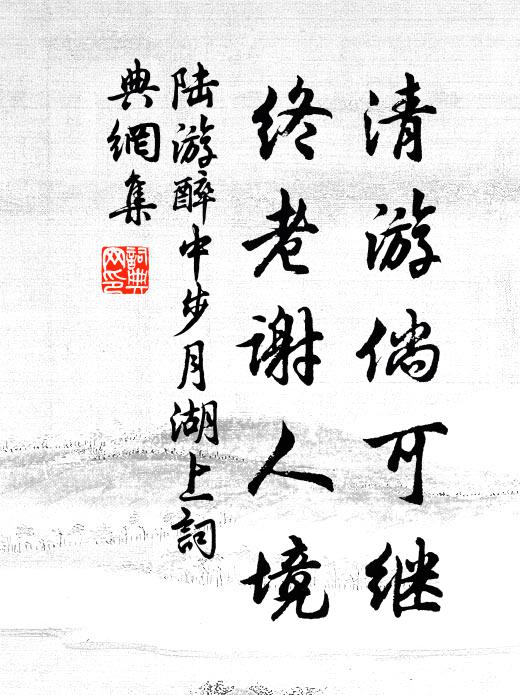 清游倘可继
终老谢人境
陆游醉中步月湖上词
典网集
词典
网印